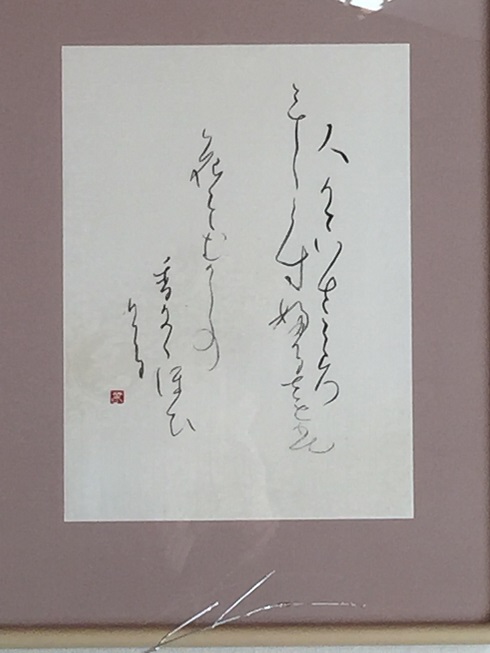 人はいさこゝろ
もしらす婦るさとは
花そむかしの
香にゝほひ
ける